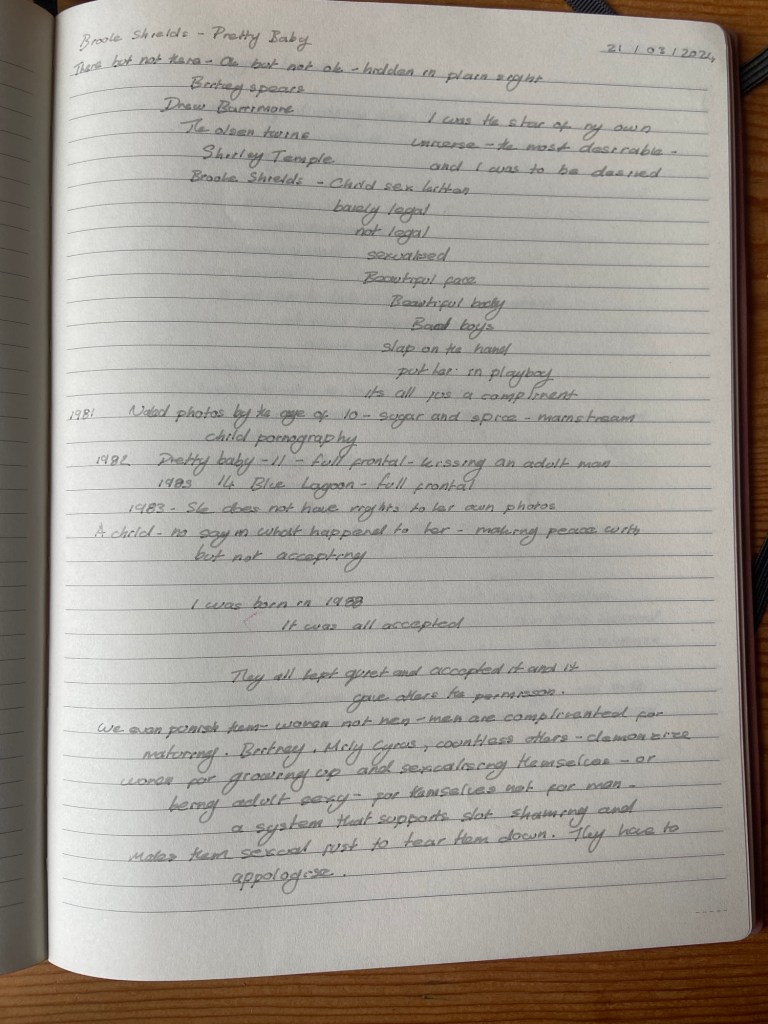 Brooke Shields - Pretty Baby
21/03/2024
There but not there - Ok but not ok - hidden in plain sight
Britney spears
Drew Barrimore
The olsen twins
Shirley Temple
I was the star of my own
universe - the most desirable -
and I was to be desired
Brooke Shields - Child sex kitten
barely legal
not legal
sexualised
Beautiful face
Beautiful body
Bad boys
slap on the hand
put her in playboy
its all jus a compliment
1981 Naked photos by the age of 10 - sugar and spice - mainstream
child pornography
1982 Pretty baby - 11 - full frontal - kissing an adult man
1983 14 Blue Lagoon - full frontal
1983 - She does not have rights to her own photos
A child - no say in what happened to her - making peace with
but not accepting
I was born in 1988
It was all accepted
They all kept quiet and accepted it and it
gave others the permisson.
We even punish them - women not men - men are complimented for
maturing. Britney, Mily Cyrus, countless others - demonize
women for growing up and sexcalising themselves - or
being adult sexy - for themselves not for man -
a system that supports slut shaming and
makes them sexual just to tear them down. They have to
appologise.